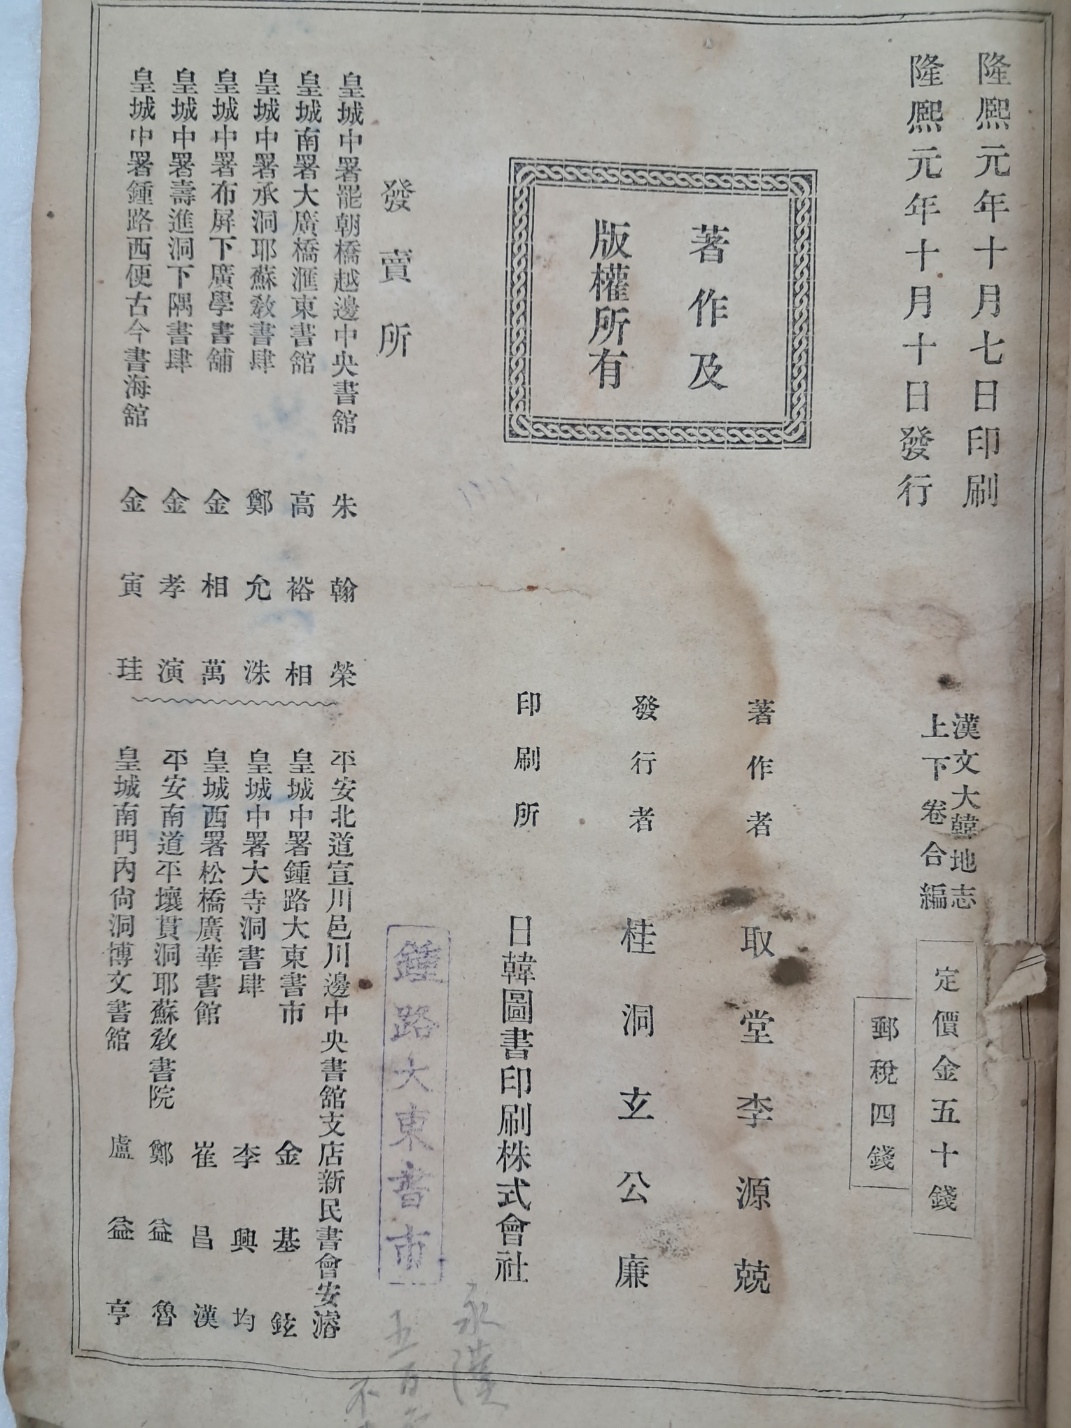 隆熙元年十月七日印刷
隆熙元年十月十日發行
漢文大韓地志
上下卷合編
定價金五十錢
郵稅四錢
著作及
版權所有
著作者 取堂李源兢
發行者 桂洞玄公廉
印刷所 日韓圖書印刷株式會社
發賣所
皇城中署罷朝橋越邊中央書舘 朱翰榮
皇城南署大廣橋滙東書舘 高裕相
皇城中署承洞耶蘇敎書肆 鄭允洙
皇城中署布屏下廣學書舖 金相萬
皇城中署壽進洞下隅書肆 金孝演
皇城中署鍾路西便古今書海舘 金寅珪
平安北道宣川邑川邊中央書舘支店新民書會安濬
皇城中署鍾路大東書市 金基鉉
皇城中署大寺洞書肆 李興均
皇城西署松橋廣華書館 崔昌漢
平安南道平壤貫洞耶蘇敎書院 鄭益魯
皇城南門內尙洞博文書舘 盧益亨
鍾路大東書市